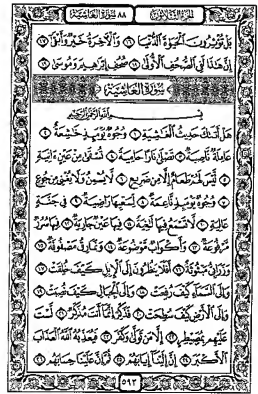 الجزء الثلاثون ٨٨ سورة الغاشية
بَلْ تُؤْثِرُونَ الْحَيَوٰةَ الدُّنْيَا ١٦ وَالْآخِرَةُ خَيْرٌ وَأَبْقَىٰ ١٧
إِنَّ هَٰذَا لَفِي الصُّحُفِ الْأُولَىٰ ١٨ صُحُفِ إِبْرَٰهِيمَ وَمُوسَىٰ ١٩
سورة الغاشية
بِسْمِ اللَّهِ الرَّحْمَٰنِ الرَّحِيمِ
هَلْ أَتَىٰكَ حَدِيثُ الْغَٰشِيَةِ ١ وُجُوهٌ يَوْمَئِذٍ خَٰشِعَةٌ ٢
عَامِلَةٌ نَّاصِبَةٌ ٣ تَصْلَىٰ نَارًا حَامِيَةً ٤ تُسْقَىٰ مِنْ عَيْنٍ ءَانِيَةٍ
٥ لَّيْسَ لَهُمْ طَعَامٌ إِلَّا مِن ضَرِيعٍ ٦ لَّا يُسْمِنُ وَلَا يُغْنِي مِن جُوعٍ
٧ وُجُوهٌ يَوْمَئِذٍ نَّاعِمَةٌ ٨ لِّسَعْيِهَا رَاضِيَةٌ ٩ فِي جَنَّةٍ
عَالِيَةٍ ١٠ لَّا تَسْمَعُ فِيهَا لَٰغِيَةً ١١ فِيهَا عَيْنٌ جَارِيَةٌ ١٢ فِيهَا سُرُرٌ
مَّرْفُوعَةٌ ١٣ وَأَكْوَابٌ مَّوْضُوعَةٌ ١٤ وَنَمَارِقُ مَصْفُوفَةٌ ١٥
وَزَرَابِيُّ مَبْثُوثَةٌ ١٦ أَفَلَا يَنظُرُونَ إِلَى الْإِبِلِ كَيْفَ خُلِقَتْ ١٧
وَإِلَى السَّمَاءِ كَيْفَ رُفِعَتْ ١٨ وَإِلَى الْجِبَالِ كَيْفَ نُصِبَتْ ١٩
وَإِلَى الْأَرْضِ كَيْفَ سُطِحَتْ ٢٠ فَذَكِّرْ إِنَّمَا أَنتَ مُذَكِّرٌ ٢١ لَّسْتَ
عَلَيْهِم بِمُصَيْطِرٍ ٢٢ إِلَّا مَن تَوَلَّىٰ وَكَفَرَ ٢٣ فَيُعَذِّبُهُ اللَّهُ الْعَذَابَ
الْأَكْبَرَ ٢٤ إِنَّ إِلَيْنَا إِيَابَهُمْ ٢٥ ثُمَّ إِنَّ عَلَيْنَا حِسَابَهُم ٢٦
٥٩٣